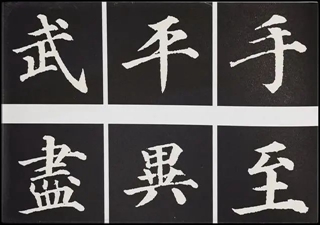 武平手
盡異至